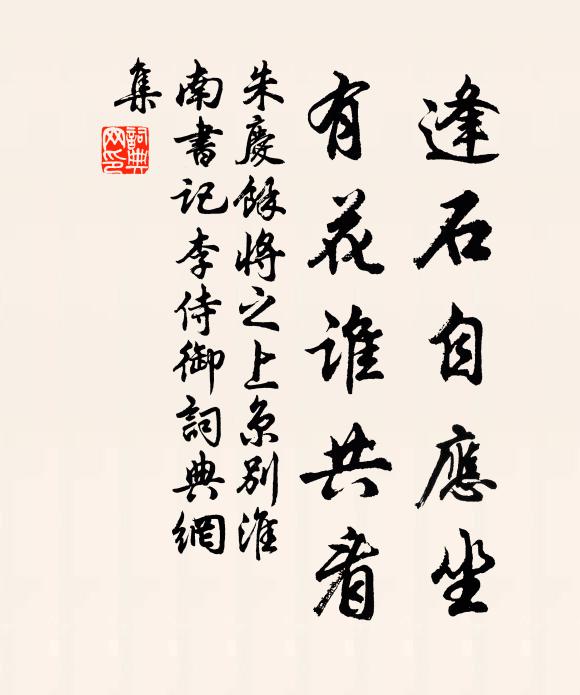 逢石自應坐
有花誰共看
朱慶餘將之上京別淮
南書記李侍御詞典網
集
詞典網印